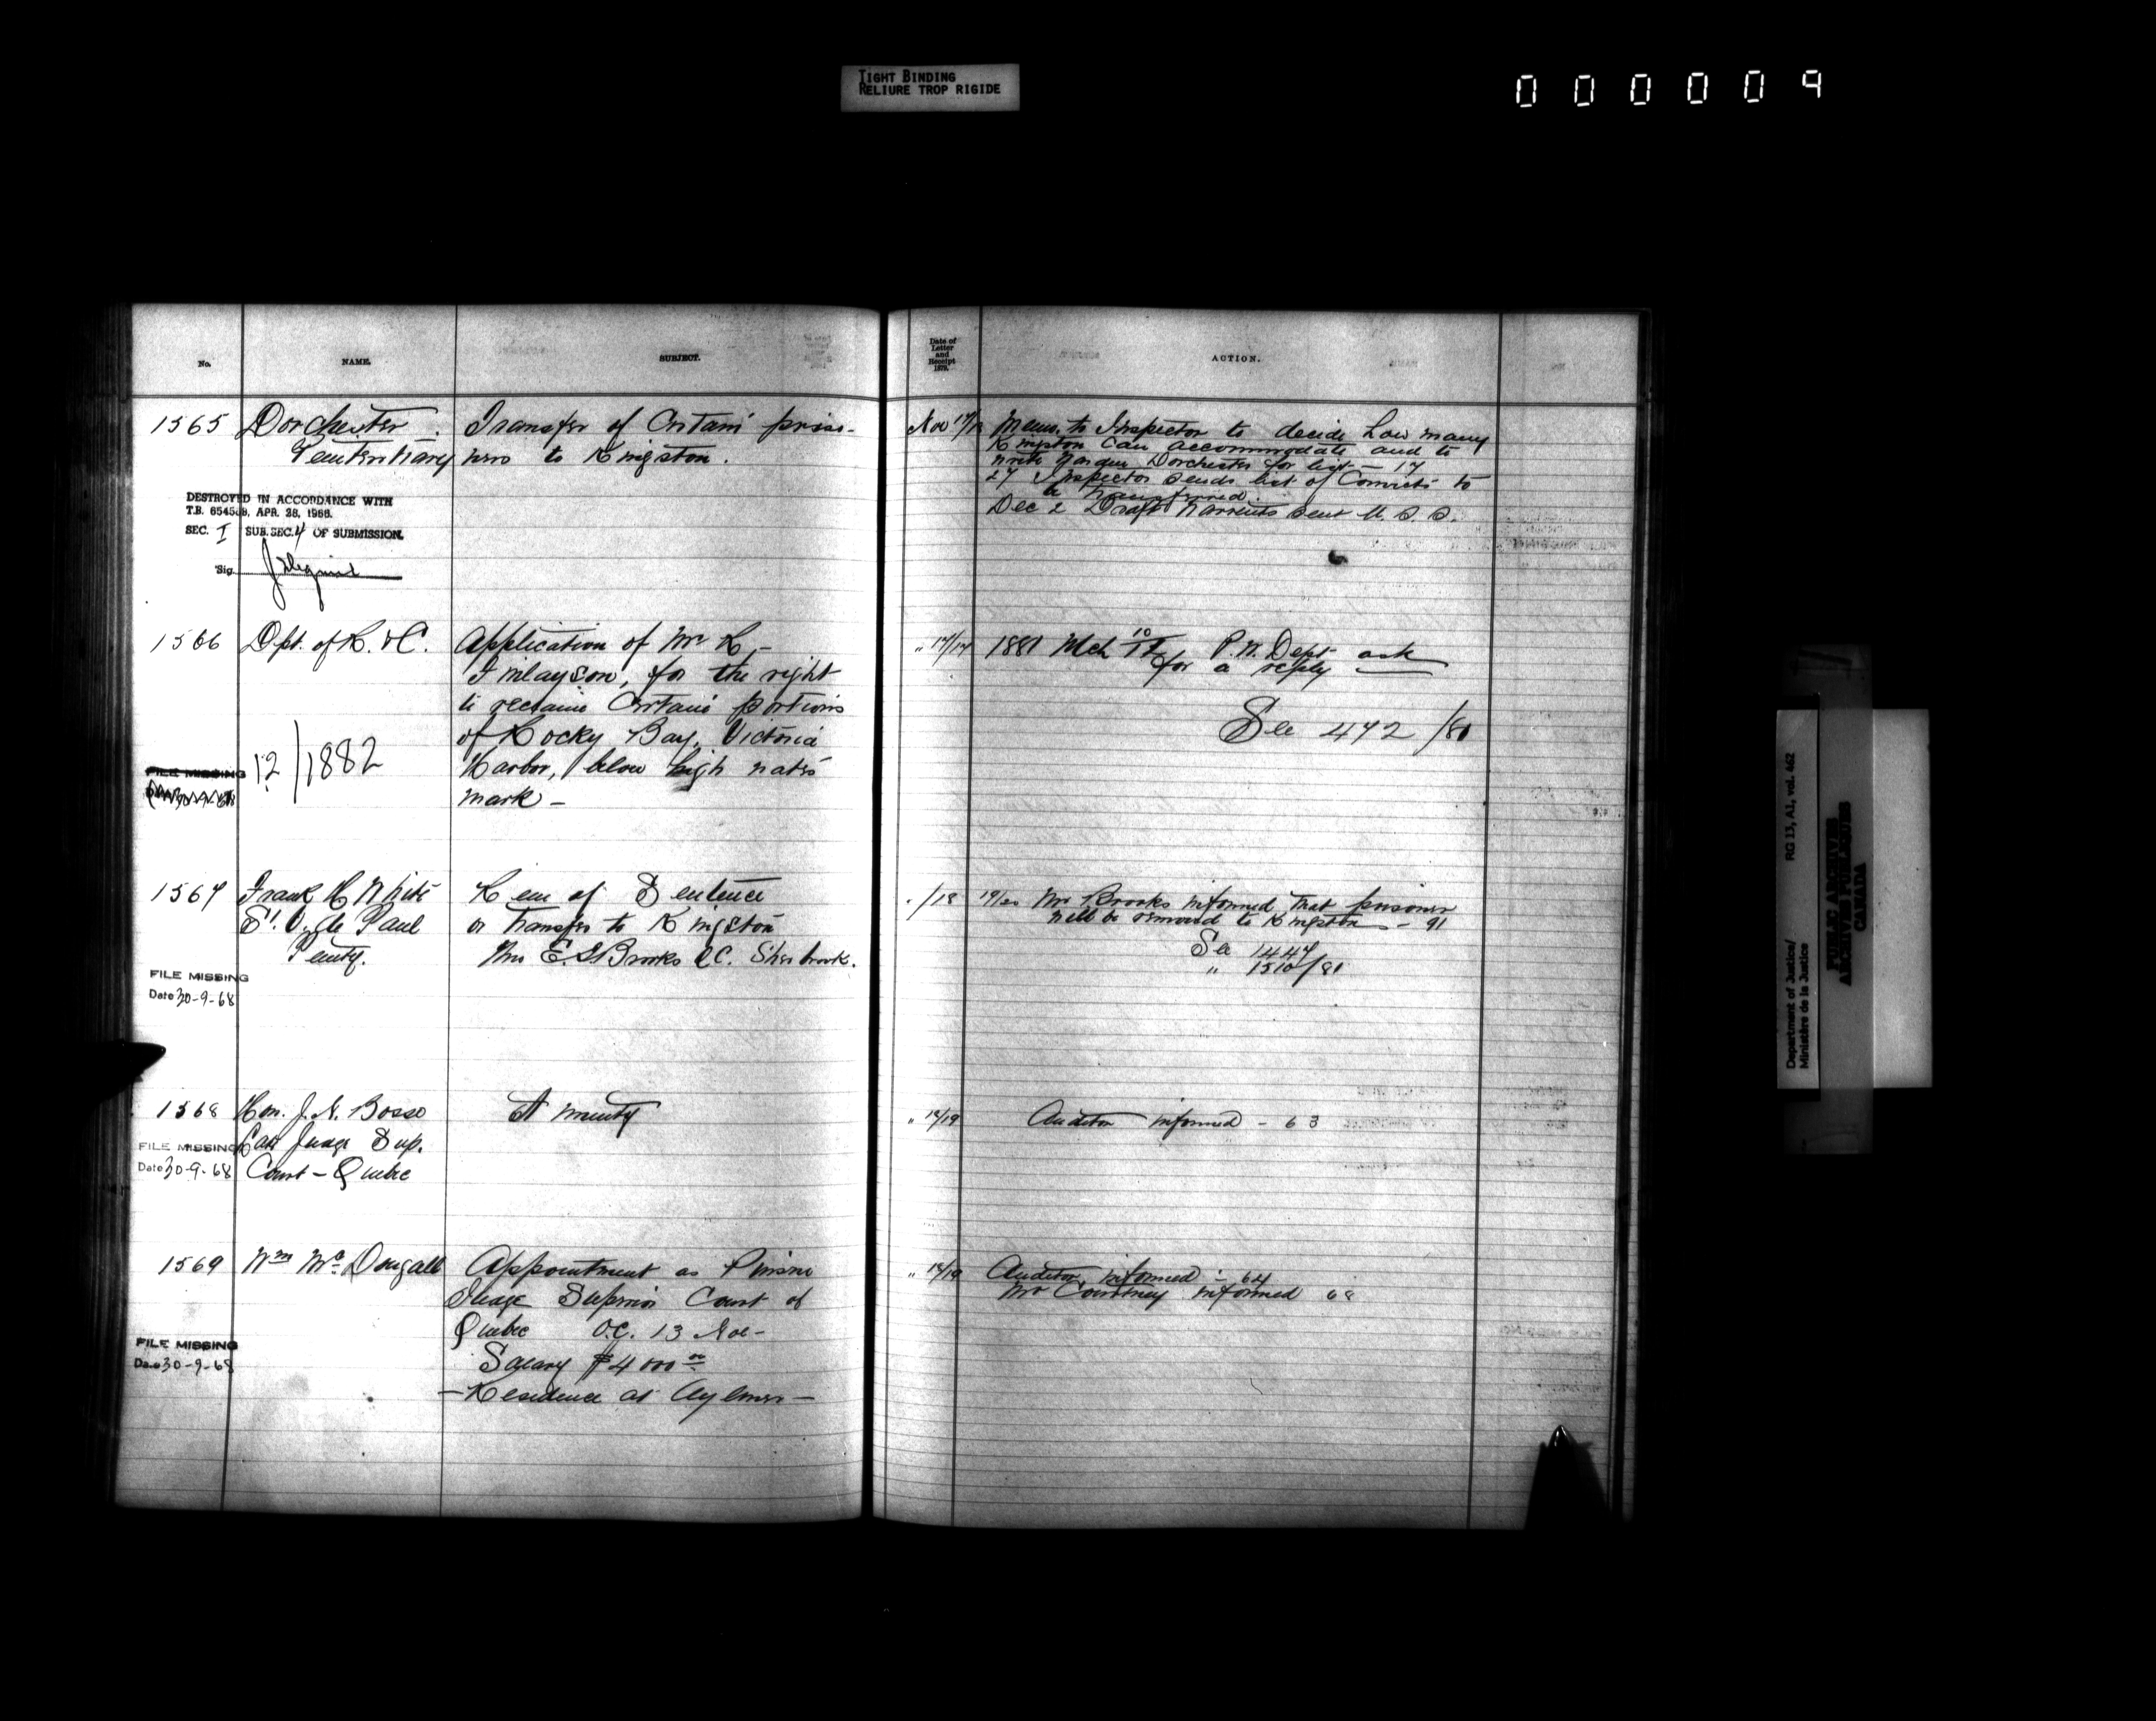 TIGHT BINDING
RELIURE TROP RIGIDE
000009
No.
NAME.
SUBJECT.
Date of Letter and Receipt 1879.
ACTION.
1565
Dorchester
Penitentiary
Transfer of Certain priso-
ners to Kingston.
Nov 17/18
Memo. to Inspector to decide how many
Kingston can accommodate and to
write Warden Dorchester for list - 17
27 Inspector sends list of Convicts to
be transferred.
Dec 2 Draft Warrants sent U. S. S.
DESTROYED IN ACCORDANCE WITH
T.B. 6545 , APR. 28, 1966.
SEC. I SUB. SEC. 4 OF SUBMISSION.
Sig.
1566
Dpt. of R. & C.
Application of Mr R -
Finlayson, for the right
to reclaim Certain portions
of Rocky Bay, Victoria
Harbor, below high water
mark -
" 17/17
1881 Mch P.W. Dept ask
for a reply
See 472/80
12/1882
FILE MISSING
1567
Frank H White
St. V. de Paul
Penty.
Rem of Sentence
or transfer to Kingston
Mr E. T Brooks QC. Sherbrook.
" /18
19/20 Mr Brooks informed that prisoner
will be removed to Kingston - 91
See 1447
" 1510/80
FILE MISSING
Date 30-9-68
1568
Hon. J. N. Bosse
Late Judge Sup.
Court - Quebec
Annuity
" 18/19
Auditor informed - 63
FILE MISSING
Date 30-9-68
1569
Wm McDougall
Appointment as Puisne
Judge Superior Court of
Quebec O.C. 13 Nov -
Salary $4000 00
- Residence at Aylmer -
" 18/19
Auditor informed - 64
Mr Courtney informed 68
FILE MISSING
Date 30-9-68
Department of Justice/
Ministère de la Justice
RG 13, A1, vol. 462
PUBLIC ARCHIVES
ARCHIVES PUBLIQUES
CANADA